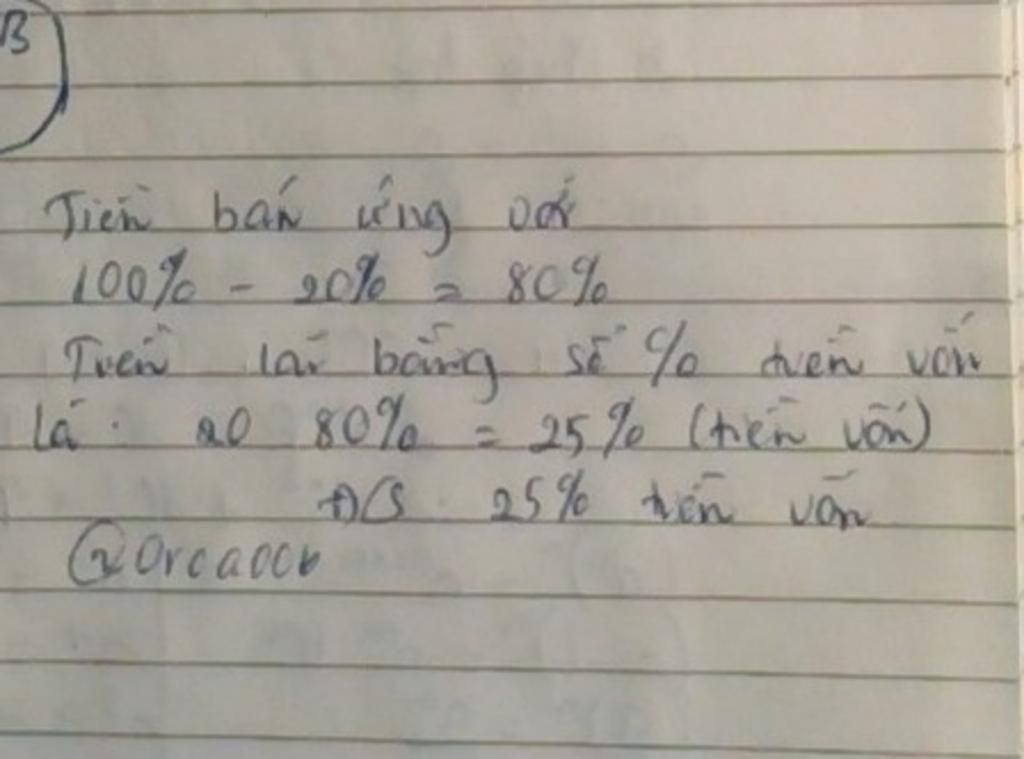 B
Tiền bán ứng với
100% - 20% = 80%
Tiền lãi bằng số % tiền vốn
là : 20 80% = 25% (tiền vốn)
ĐS 25% tiền vốn